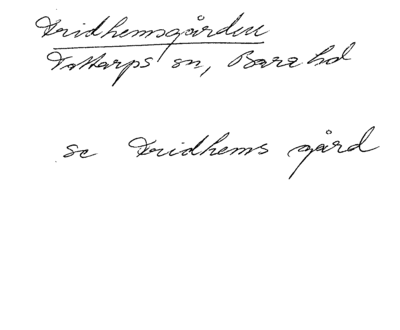 Fridhemsgården
Tottarps sn, Bara hd
se Fridhems gård